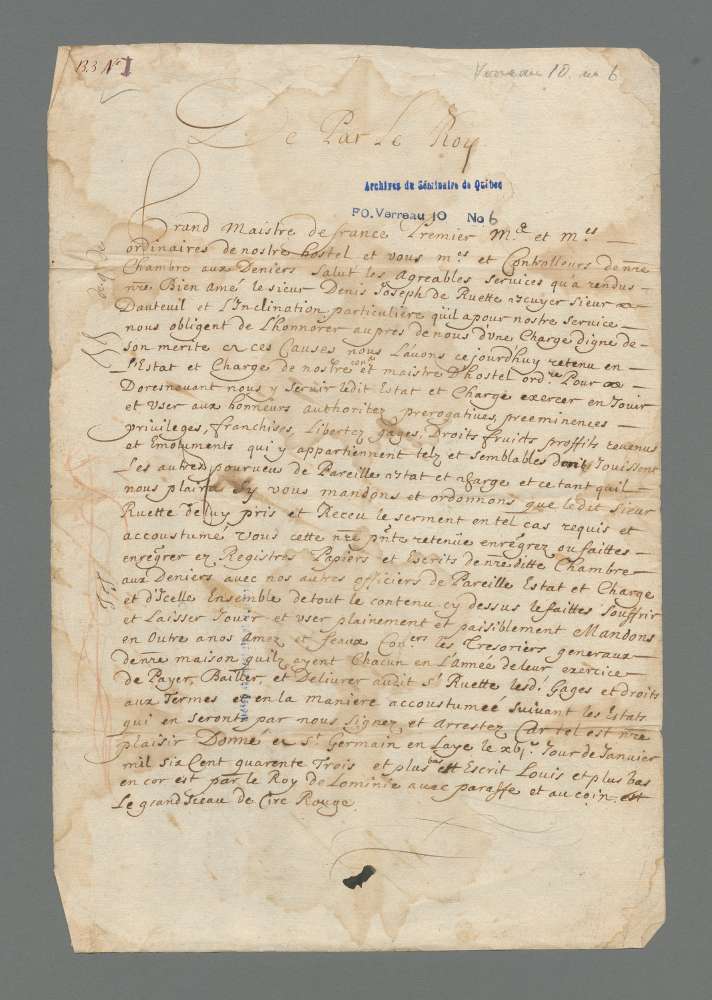 B.3 N.° 1
Verreau 10. no 6
De Par Le Roy
Archives du Séminaire de Québec
FO. Verreau 10 No 6
Grand Maistre de france Premier M.e et M.es
ordinaires de nostre hostel et vous m.es et Controlleurs de nre
Chambre aux Deniers Salut les Agreables Services qu'a rendus
nre Bien Amé le sieur Denis Joseph de Ruette Escuyer Sieur
Dauteuil et L'Inclination particuliere quil a pour nostre Service
nous obligent de L'honnorer aupres de nous d'vne Charge digne de
son merite ces Causes nous Lavons ce jourdhuy retenu en
L'Estat et Charge de nostre con.er et maistre D'hostel ord.re Pour
Doresnavant nous y Servir ledit Estat et Charge exercer en Jouir
et Vser aux honneurs authoritez prerogatives, preeminences
privileges, franchises, Libertez gages, Droits fruicts proffits revenus
et Emoluments qui y appartiennent telz et semblables dont Jouissent
Les autres pourveus de Pareille Estat et Charge et ce tant quil
nous plaira Sy vous mandons et ordonnons que le dit Sieur
Ruette De luy pris et Receu le serment en tel cas requis et
accoustumé, Vous cette nre pnte retenüe enregrez ou faittes
enregrer ez Registres Papiers et Escrits de nre ditte Chambre
aux Deniers avec nos autres officiers de Pareille Estat et Charge
et d'Icelle Ensemble de tout le contenu cy dessus le faittes Souffrir
et Laisser Jouir et vser plainement et paisiblement Mandons
en Outre a nos Amez et feaux Con.ers les Tresoriers generaux
de nre maison quilz ayent Chacun en L'Année de leur exercice
de Payer, Bailler, et Delivrer audit S.r Ruette lesd. Gages et droits
aux Termes et en la maniere accoustumée Suivant les Estats
qui en seront par nous Signez et Arrestez Car tel est nre
plaisir Donné a St Germain en Laye le xbj.e Jour de Januier
mil Six Cent quarente Trois et plus bas est Escrit Louis et plus bas
en cor est par le Roy de Lominie avec paraffe et au coin est
Le grand Sceau de Cire Rouge